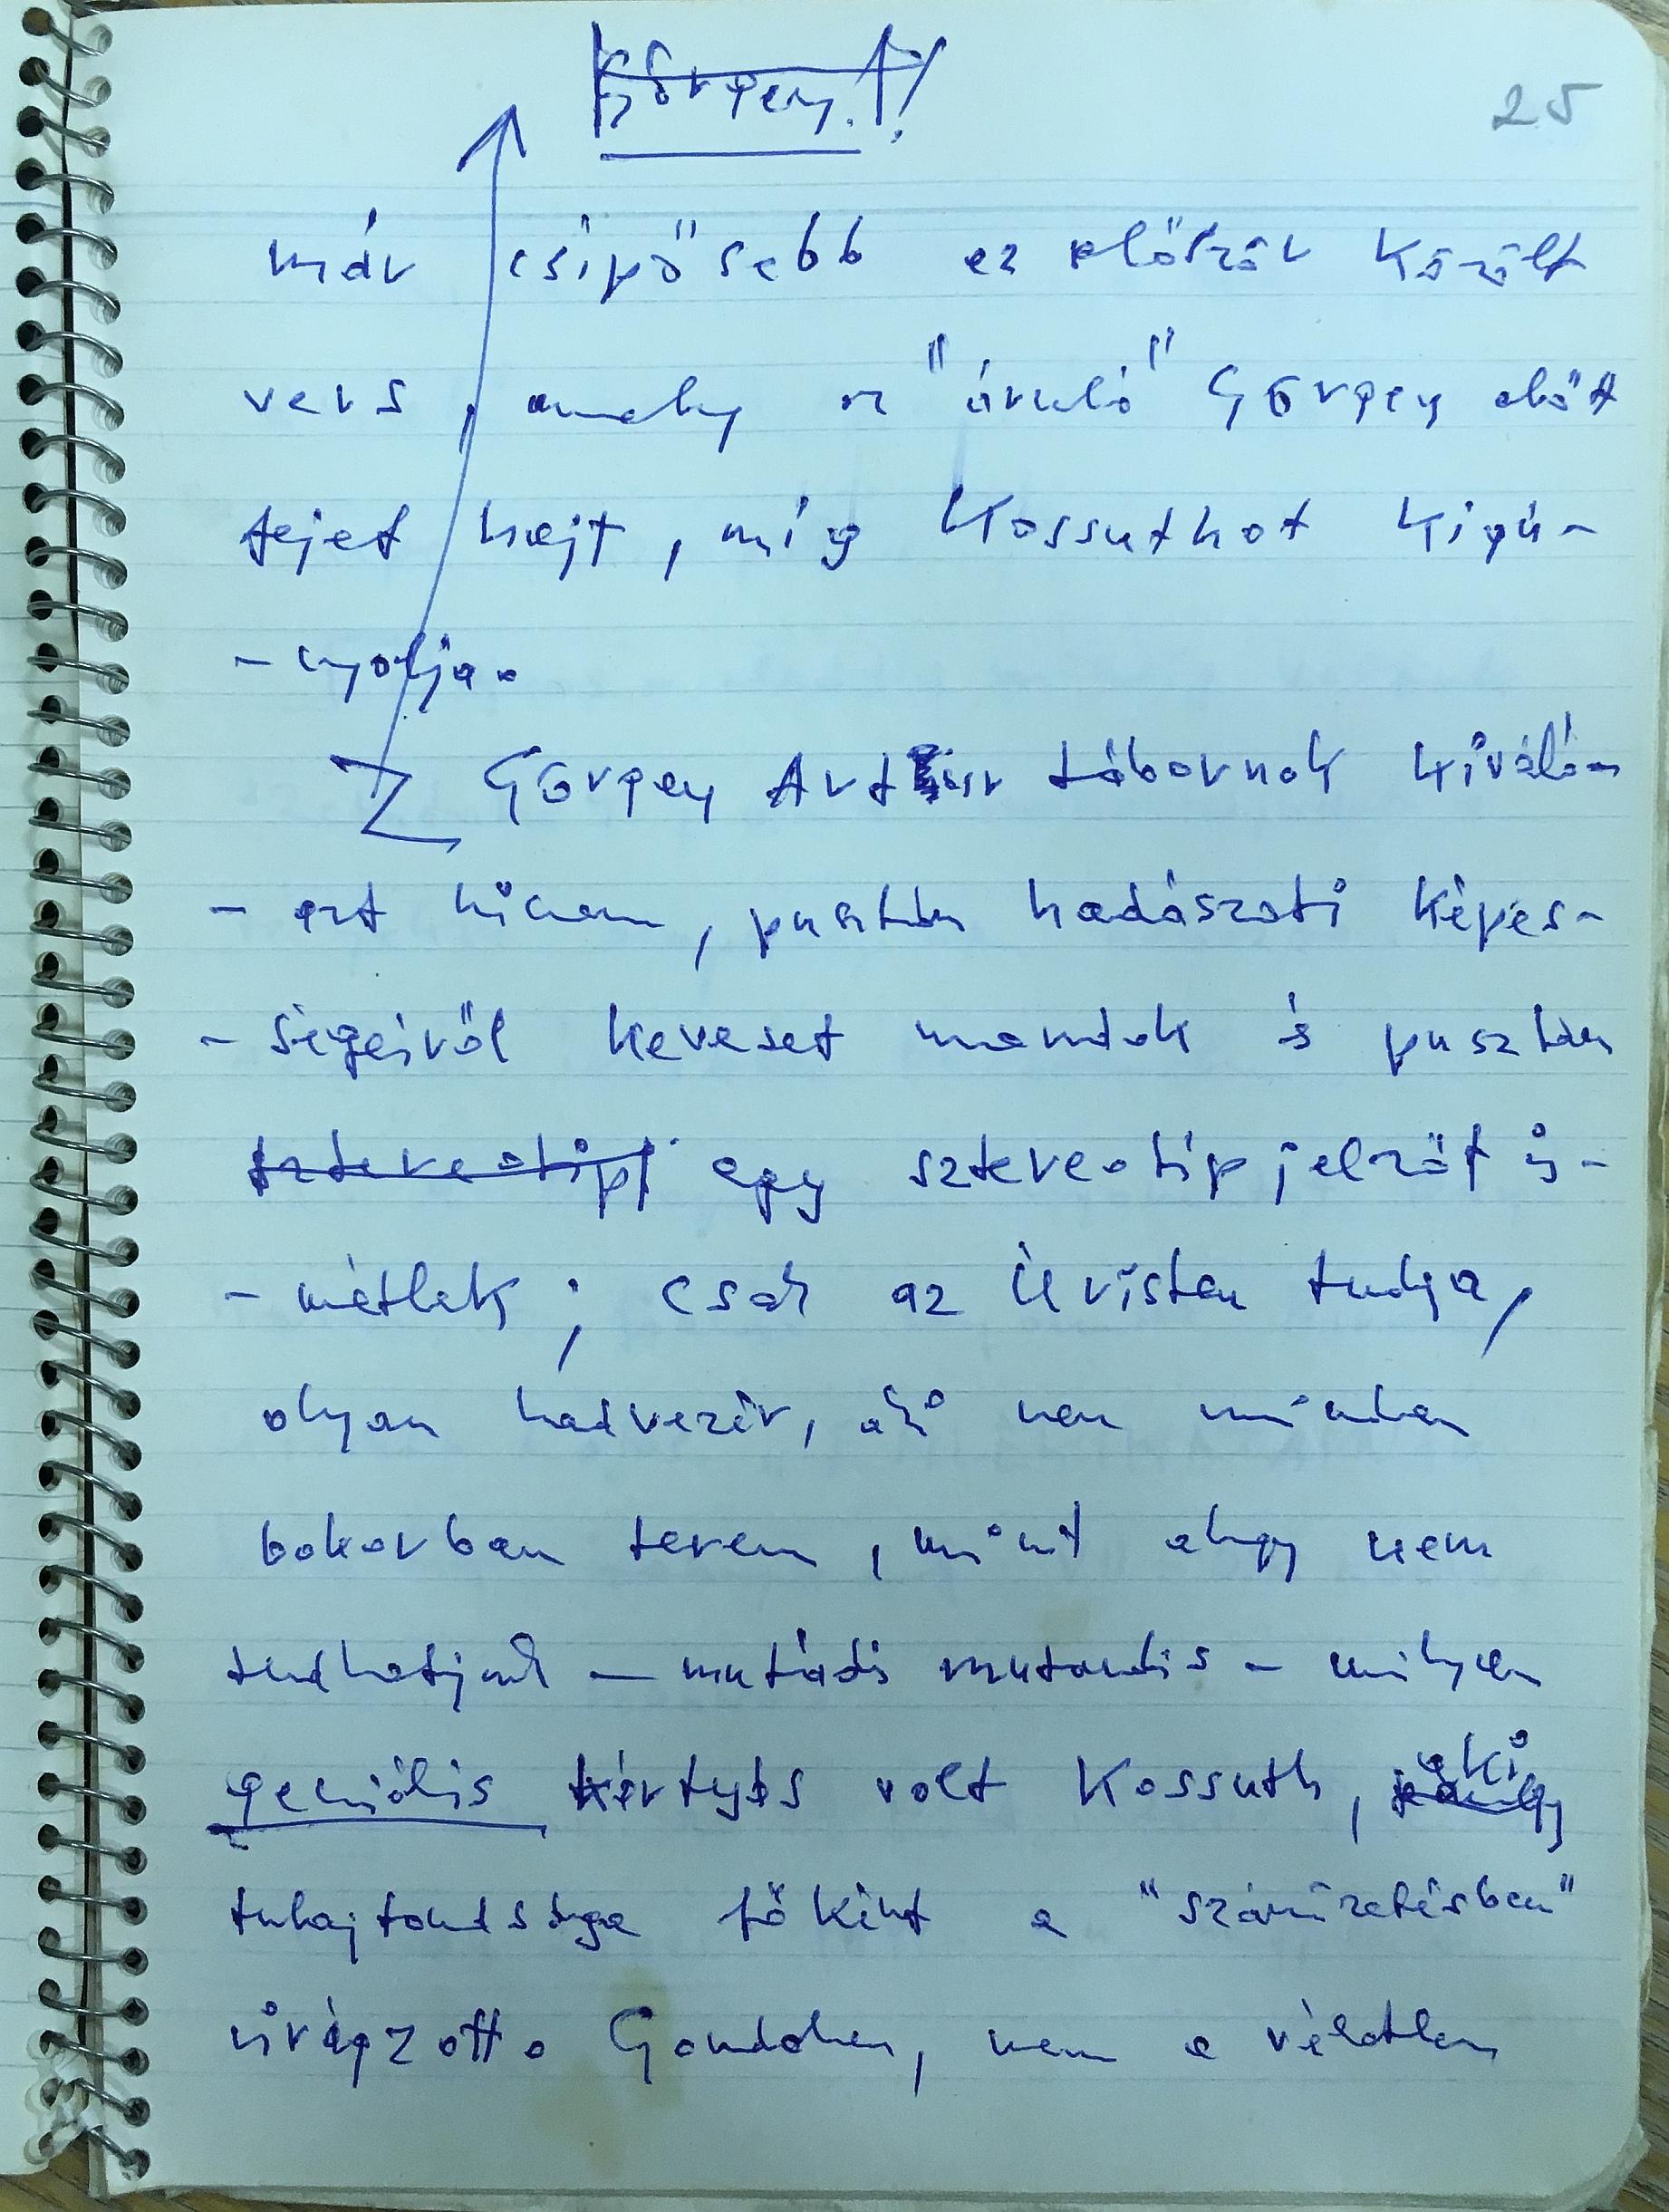 Görgey!
25
már csípősebb ez először közölt
vers, amely az "áruló" Görgey előtt
fejet hajt, míg Kossuthot kigú-
-nyolja.
Görgey Artúr tábornok kiváló-
-ant hívem, pusztán hadászati képes-
-ségeiről keveset mondok és pusztán
sztereotip egy sztereotip jelzőt is-
-métlek; csak az Úristen tudja,
olyan hadvezér, aki nem minden
bokorban terem, mint ahogy nem
tudhatjuk — mutatis mutandis - milyen
geniális kártyás volt Kossuth, aki
tulajdonsága főként a "száműzetésben"
virágzott. Gondolom, nem a véletlen